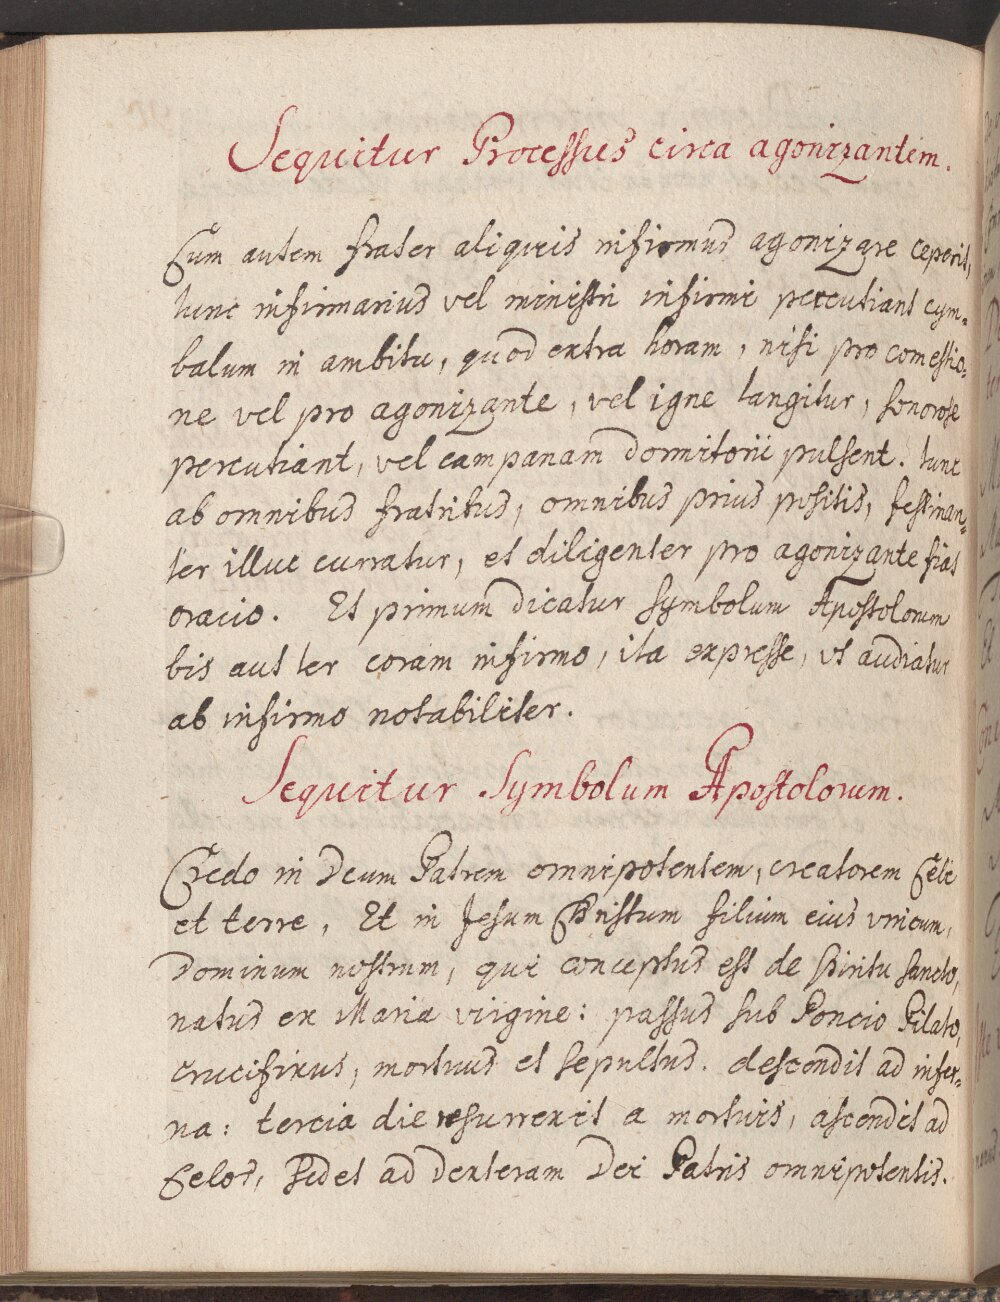 Sequitur Processus circa agonizantem.
Cum autem frater aliquis infirmus agonizare ceperit,
tunc infirmarius vel ministri infirmi percutiant cym=
balum in ambitu, quod extra horam, nisi pro comestio=
ne vel pro agonizante, vel igne tangitur, sonorose
percutiant, vel campanam dormitorii pulsent. tunc
ab omnibus fratribus, omnibus prius positis, festinan=
ter illuc curratur, et diligenter pro agonizante fiat
oracio. Et primum dicatur symbolum Apostolorum
bis aut ter coram infirmo, ita expresse, vt audiatur
ab infirmo notabiliter.
Sequitur Symbolum Apostolorum.
Credo in Deum Patrem omnipotentem, creatorem Celi
et terre, Et in Jesum Christum filium eius vnicum,
Dominum nostrum, qui conceptus est de spiritu sancto,
natus ex Maria virgine: passus sub Poncio Pilato,
crucifixus, mortuus et sepultus. descendit ad infer=
na: tercia die resurrexit a mortuis, ascendit ad
Celos, sedet ad dexteram Dei Patris omnipotentis.